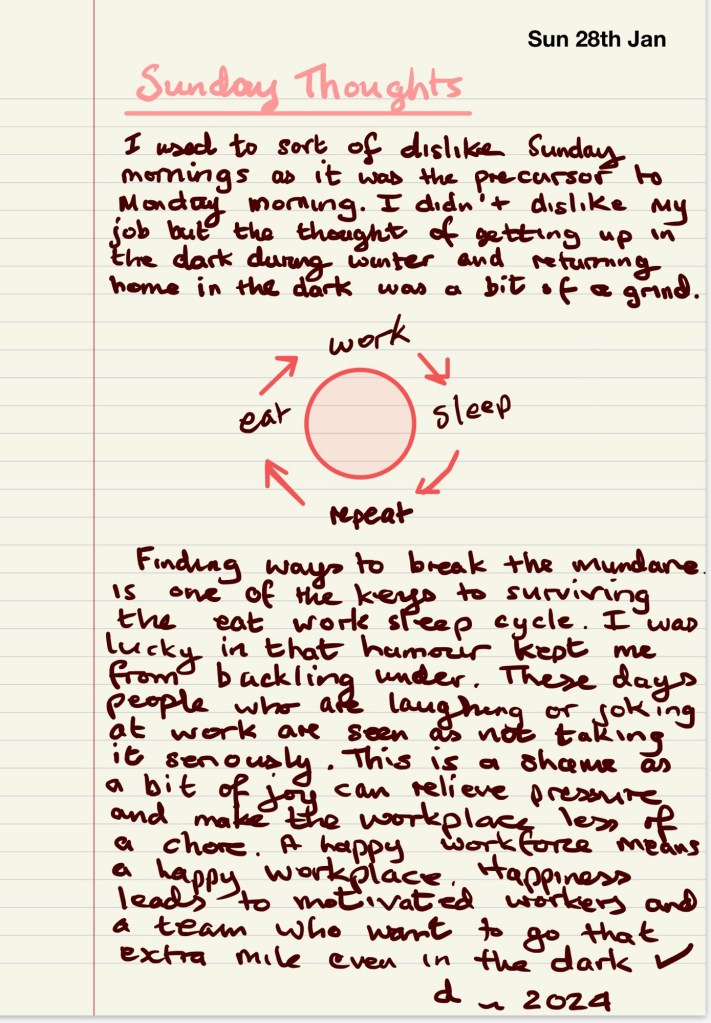 Sun 28th Jan
Sunday Thoughts
I used to sort of dislike Sunday
mornings as it was the precursor to
Monday morning. I didn't dislike my
job but the thought of getting up in
the dark during winter and returning
home in the dark was a bit of a grind.
work
eat
sleep
repeat
Finding ways to break the mundane
is one of the keys to surviving
the eat work sleep cycle. I was
lucky in that humour kept me
from backling under. These days
people who are laughing or joking
at work are seen as not taking
it seriously. This is a shame as
a bit of joy can relieve pressure
and make the workplace less of
a chore. A happy workforce means
a happy workplace. Happiness
leads to motivated workers and
a team who want to go that
extra mile even in the dark ✓
d ~ 2024